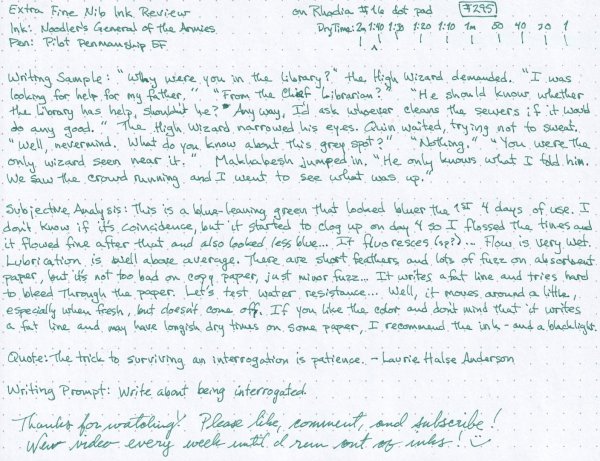 Extra Fine Nib Ink Review on Rhodia #16 dot pad #295
Ink: Noodler's General of the Armies DryTime: 2m 1:40 1:30 1:20 1:10 1m 50 40 20 1
Pen: Pilot Penmanship EF
Writing Sample: "Why were you in the library?" the High Wizard demanded. "I was
looking for help for my father." "From the Chief Librarian?" "He should know whether
the Library has help, shouldn't he? Any way, I'd ask whoever cleans the sewers if it would
do any good." The High Wizard narrowed his eyes. Quin waited, trying not to sweat.
"Well, nevermind. What do you know about this grey spot?" "Nothing." "You were the
only wizard seen near it." Makhabesh jumped in. "He only knows what I told him.
We saw the crowd running and I went to see what was up."
Subjective Analysis: This is a blue-leaning green that looked bluer the 1st 4 days of use. I
don't know if it's coincidence, but it started to clog up on day 4 so I flossed the tines and
it flowed fine after that and also looked less blue... It fluoresces (sp?)... Flow is very wet.
Lubrication is well above average. There are short feathers and lots of fuzz on absorbent
paper, but it's not too bad on copy paper, just minor fuzz... It writes a fat line and tries hard
to bleed through the paper. Let's test water resistance... Well, it moves around a little,
especially when fresh, but doesn't come off. If you like the color and don't mind that it writes
a fat line and may have longish dry times on some paper, I recommend the ink - and a blacklight.
Quote: The trick to surviving an interrogation is patience. - Laurie Halse Anderson
Writing Prompt: Write about being interrogated.
Thanks for watching! Please like, comment, and subscribe!
New video every week until I run out of inks! :)